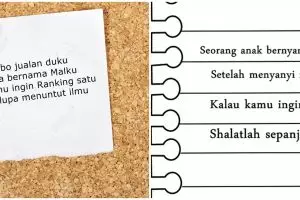 jualan duku
bernama Malku
ingin Ranking satu
lupa menuntut ilmu
Seorang anak
Setelah menyanyi
Kalau kamu
Shalatlah